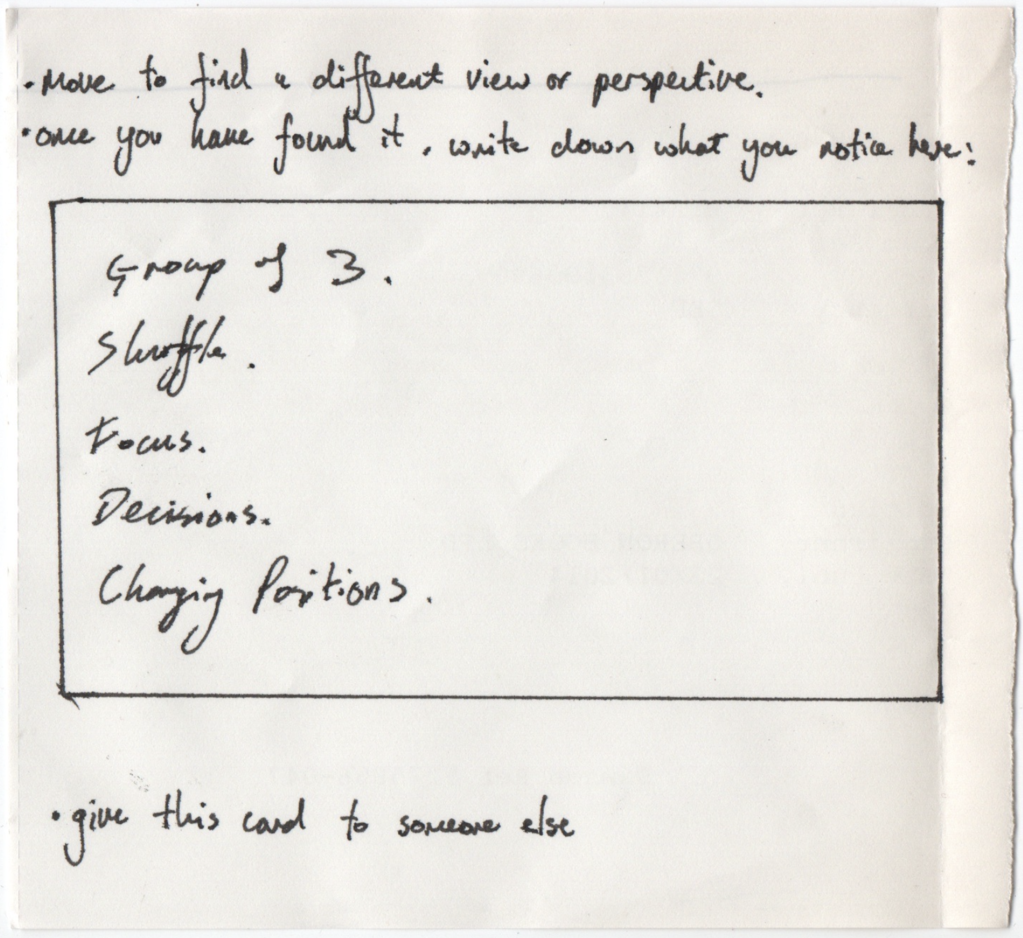 • Move to find a different view or perspective.
• once you have found it, write down what you notice here:
Group of 3.
Shuffle.
Focus.
Decisions.
Changing Positions.
• give this card to someone else